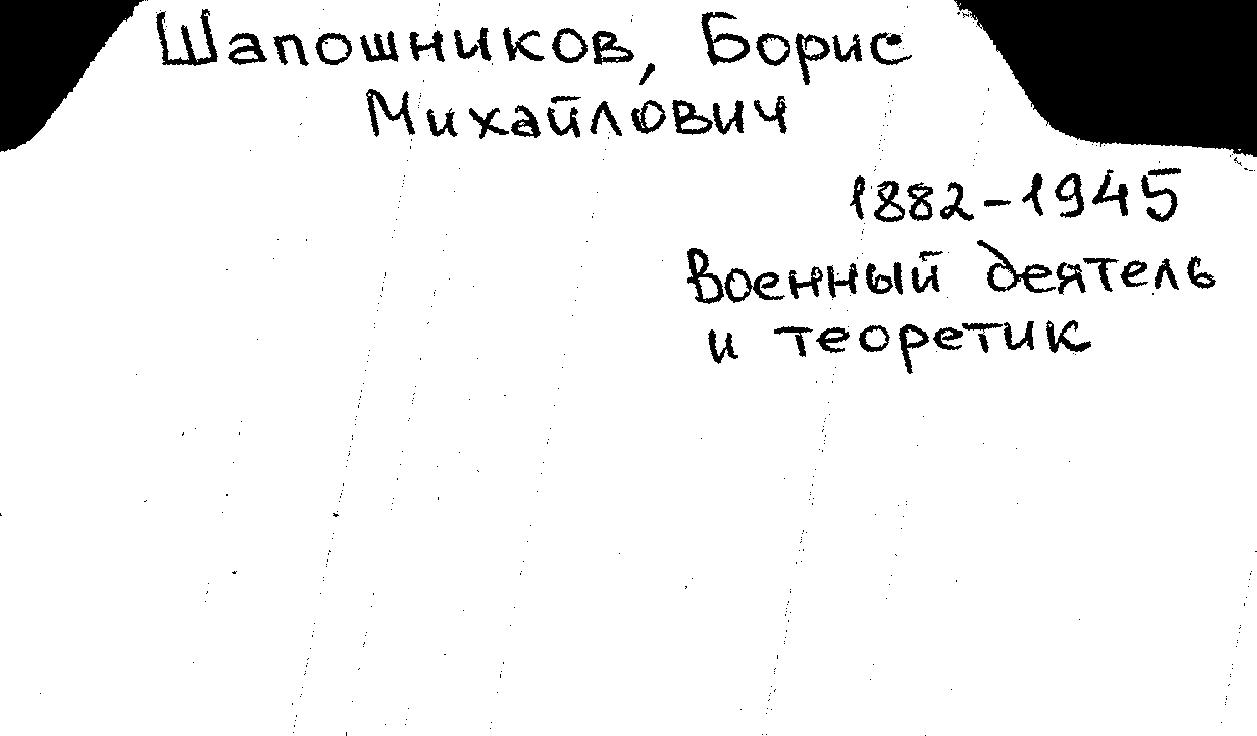 Шапошников, Борис
Михайлович
1882-1945
Военный деятель
и теоретик